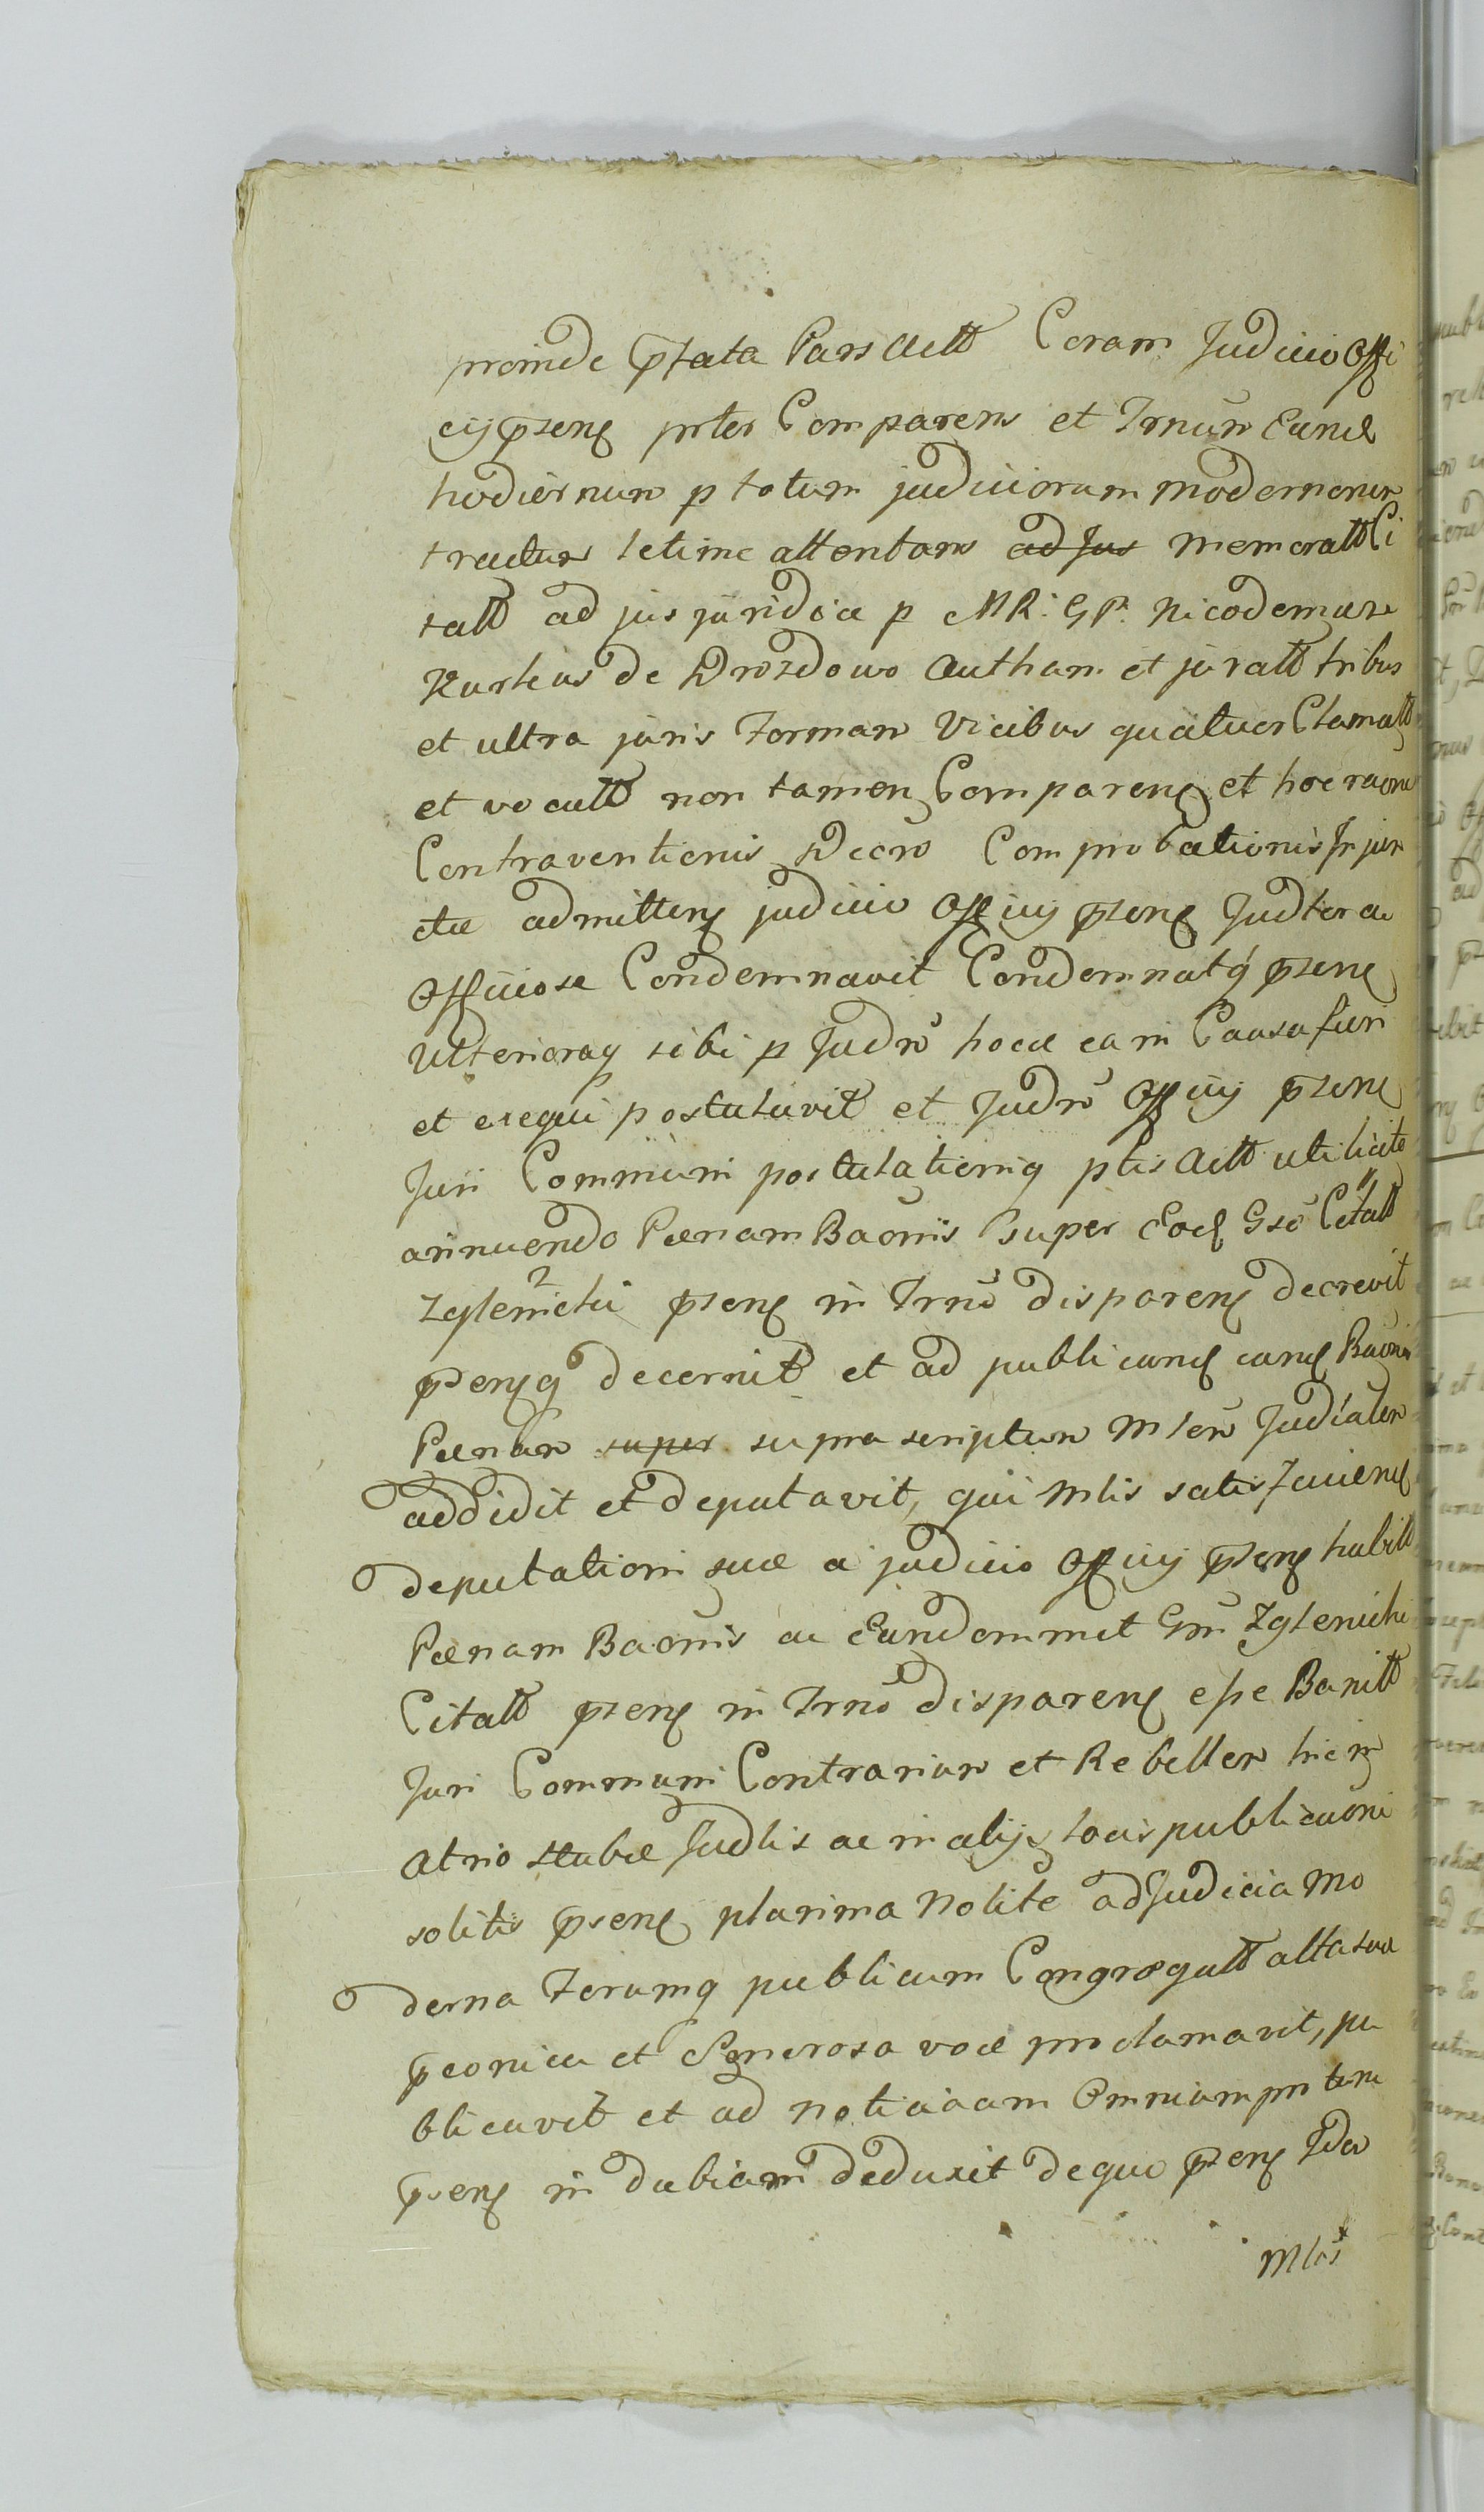 proinde pſtata Pars Actt Coram Judicio Offi
cij pſenſ prtes Comparens et Trnūm Eund
hodiernum p totum judiciorum modernorum
tractum letime attentans ad Jus memoratt Ci
tatt ad jus juridice p MR: GP. Nicodemum
Kurkus de Drozdowo Autham et juratt tribus
et ultra juris Formam Vicibus quatuor Clamatt
et vocatt non tamen Comparenſ et hoc raōne
Contraventionis Decro Comprobationis Injun
ctae admittenſ judicio Officij pſenſ Judter ac
Officiose Condemnavit Condemnatq pſenſ
Ulterioraq sibi p Judm̄ hocce ea in Causa fieri
et exequi postulavit et Judm̄ Officij pſenſ
Juri Communi postulationiq ptis Actt uti licite
annuendo Paenam Baōnis super Eod Gso Citatt
Zglenicki pſenſ in Trno disparenſ decrevit
pſenſq decernit et ad publicand eand Baōnis
Paenam super supra scriptum Mlem Judialem
addidit et deputavit, qui Mlis satisfaciend
deputationi suae a judicio Officij pſenſ habitt
Paenam Baōnis ac Eundemmet Gm Zglenicki
Citatt pſenſ in Trno disparenſ esse Banitt
Juri Communi Contrarium et Rebellem hic in
atrio stubae Judlis ac in alijs locis publicaōni
solitis pſenſ plurima Nolite ad Judicia Mo
derna Forumq publicum Congregatt alta sua
pconica et Generosa voce proclamavit, pu
blicavit et ad noticiaam Omnium pro tunc
pſenſ in dubiam deduxit de quo pſenſ Ider
Mlis